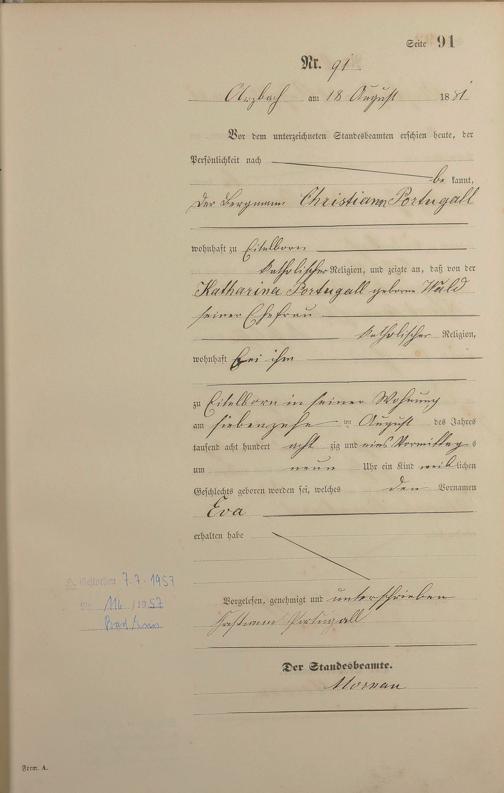 Seite 91
Nr. 91
Arzbach am 18 August 1881
Vor dem unterzeichneten Standesbeamten erschien heute, der
Persönlichkeit nach
be kannt,
der Bergmann Christiann Portugall
wohnhaft zu Eitelborn
katholischer Religion, und zeigte an, daß von der
Katharina Portugall geborne Wald
seiner Ehefrau
katholischer Religion,
wohnhaft bei ihm
zu Eitelborn in seiner Wohnung
am siebenzehn im August des Jahres
tausend acht hundert acht zig und eins Vormittag s
um neun Uhr ein Kind weib lichen
Geschlechts geboren worden sei, welches den Vornamen
Eva
erhalten habe
Gestorben 7.7.1957
Nr. 116/1957
Bad Ems
Vorgelesen, genehmigt und unterschrieben
Portugall
Der Standesbeamte.
Form. A.